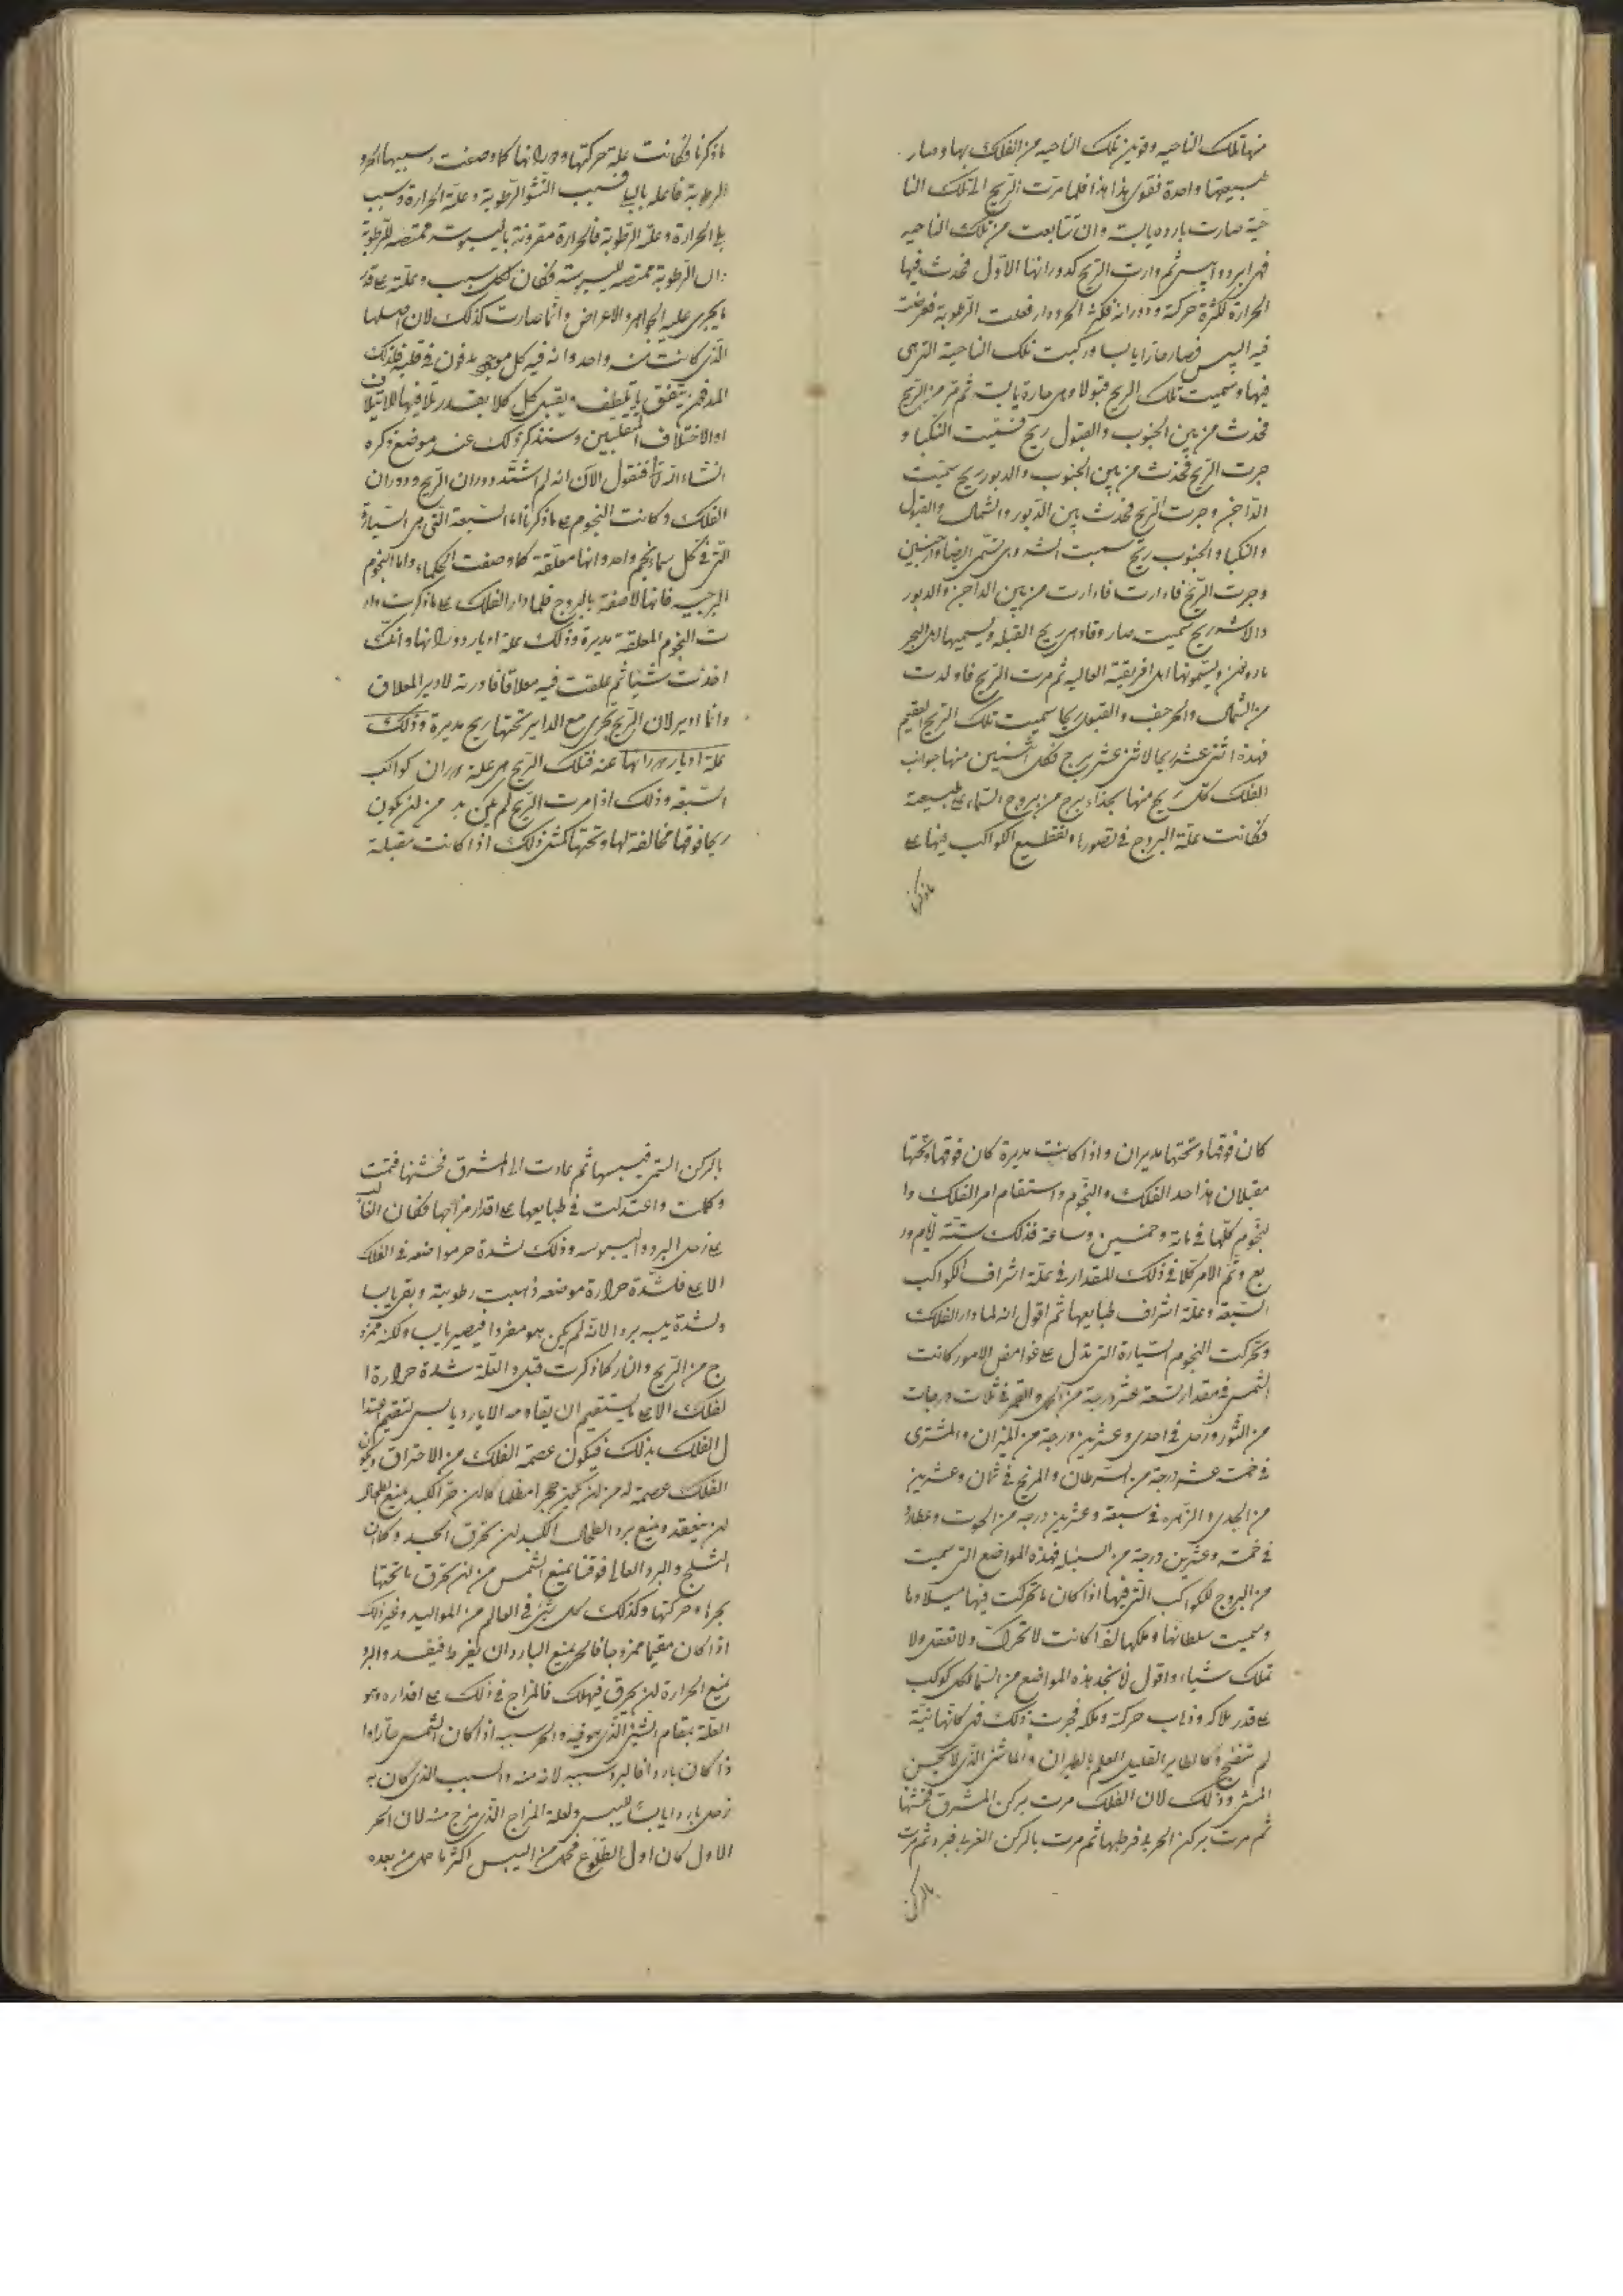 منها تلك الناحيه وقوتين تلك الناحيه من الفلك بها وصار
طبيعتها واحدة فقوى هذا هذا فلما مرت الريح الى تلك النا
حية صارت بارده يابسة وان تتابعت من تلك الناحيه
فهى ابرد وايبس ثم دارت الريح كدورانها الاول فحدث فيها
الحرارة لكثرة حركته ودورانه فكثر الحر ودار فعلت الرطوبة فعرضت
فيه اليبس فصار حارا يابسا وركبت تلك الناحية التى هى
فيها وسميت تلك الريح قبولا وهى حارة يابسة ثم مر من الريح
فحدث من بين الجنوب والقبول ريح فسميت النكبا و
جرت الريح فحدث من بين الجنوب والدبور ريح سميت
الداجن وجرت الريح فحدث بين الدبور والشمال والقبول
والنكبا والجنوب ريح سميت وهى تسمى ايضا
وجرت الريح فادارت فادارت من بين الداجن والدبور
ريح سميت صار وقا وهى ريح القبله ويسميها اهل البحر
ويسمونها اهل افريقية العاليه ثم مرت الريح فاولدت
من الشمال والحرجف والقبول ريحا سميت تلك الريح العقيم
فهذه اثنى عشر ريحا لاثنى عشر برج فكل اثنين منها جوانب
الفلك كل ريح منها بحذاء برج من بروج السماء على طبيعته
فكانت علة البروج فى تصورها وتقطيع الكواكب فيها على
ماذكرنا
ماذكرنا فكانت علة حركتها ودورانها كما وصفت وسببها الحر و
الرطوبة فاعله فسبب النشو الرطوبة وعلة الحرارة وسبب
الحرارة وعلة الرطوبة فالحرارة مقرونة باليبوسة ممتصه للرطوبة
الرطوبة ممتصه لليبوسة فكان لكل سبب وعلة على قدر
ما يجرى عليه الجواهر والاعراض وانما صارت كذلك لان اصلها
الذى كانت منه واحد وانه فيه كل موجود مدفون فى قطبه فلذلك
المدفون يتفق ما يلطف ويقبل كل كلا بقدر تلاقيها للايتلاف
او الاختلاف وسنذكر ذلك عند موضع ذكره
انشاء الله تعالى فنقول الآن انه لم اشتد دوران الريح ودوران
الفلك وكانت النجوم على ماذكرنا اما السبعة التى هى السيارة
التى فى كل سماء نجم واحد وانها معلقة كما وصفت الحكماء واما النجوم
البرجيه فانها لاصقة بالبروج فلما دار الفلك على ماذكرت دار
ت النجوم المعلقة مديرة وذلك علة ادبار دورانها وانك
اخذت شيئا ثم علقت فيه معلاقا فادرته لادبر المعلاق
وانما ادبر لان الريح تجرى مع الداير تحتها ريح مديرة وذلك
علة ادبار دورانها عنه فتلك الريح هى علة دوران كواكب
السبعة وذلك اذا مرت الريح لم يكن بد من ان يكون
ريحا فوقها مخالفة لها وتحتها كمثل ذلك اذا كانت مقبلة
كان فوقها وتحتها مديران واذا كانت مديرة كان فوقها وتحتها
مقبلان هذا حد الفلك والنجوم واستقام امر الفلك وا
لنجوم كلها فى مائة وخمسين وساعة فذلك ستة ايام ور
بع وتم الامر كلا فى ذلك المقدار فى علة اشراف الكواكب
السبعة وعلة اشراف طبايعها ثم اقول انه لما دار الفلك
وتحركت النجوم السيارة التى تدل على غوامض الامور كانت
الشمس فى مقدار تسعة عشر درجة من الحمل والقمر فى ثلاث درجات
من الثور وزحل فى احدى وعشرين درجة من الميزان والمشترى
فى خمسة عشر درجة من السرطان والمريخ فى ثمان وعشرين
من الجدى والزهره فى سبعة وعشرين درجه من الحوت وعطارد
فى خمسة وعشرين درجة من السنبله فهذه المواضع التى سميت
من البروج للكواكب التى فيها اذا كان ما تحركت فيها ميلادها
وسميت سلطانها وملكها لما كانت لا تحرك ولا تعقل ولا
تملك شيئا واقول لم نجد هذه المواضع من السما لكل كوكب
على قدر هلاكه وذهاب حركته وملكه فجرت ذلك فى كانها
لم تنضج كالطاير القليل العلم بالطيران والماشى الذى لا يحسن
المشى وذلك لان الفلك مرت بركن المشرق فخشنها
ثم مرت بركن الحر فرطبها ثم مرت بالركن الغربى فبرد ثم مرت
بالركن
بالركن اليتمن فيبسها ثم عادت الى المشرق فخشنها فتمت
وكملت واعتدلت فى طبايعها على اقدار مزاجها فكان الغالب
على زحل البرد واليبوسه وذلك لشدة حر مواضعه فى الفلك
الاعلى فلشدة حرارة موضعه ذهبت رطوبته وبقى يابسا
ولشدة يبسه برد الا انه لم يكن هو مفردا فيصير يابسا ولكنه ممزو
ج من الريح والنار كما ذكرت قبل والعلة شدة حرارة ا
لفلك الاعلى ما يستقيم ان يقاومه الا بارد يابس لتقيم اعتدا
ل الفلك بذلك فيكون عصمة الفلك من الاحتراق ويكون
الفلك عصمة له من ان يكون حجرا مظلما كما ان حر الكبد يمنع الطحال
ان ينعقد ويمنع برد الطحال الكبد ان تحرق الجسد وكما ان
الثلج والبرد العالى فوقنا يمنع الشمس من ان تحرق ما تحتها
بحرها وحركتها وكذلك كل شئ فى العالم من المواليد وغير ذلك
اذا كان مقيما ممزوجا فالحر يمنع البارد ان يفرط فيفسد والبرد
يمنع الحرارة ان تحرق فيهلك فالمزاج فى ذلك على اقداره وهو
العلة بمقام الشئ الذى هو فيه والحر سببه اذا كان الشمس حارا وا
ذا كان باردا فالبرد سببه لانه منه والسبب الذى كان به
زحل باردا يابسا لليبس ولعلة المزاج الذى مزج منه لان الحر
الاول كان اول الطلوع فحمل من اليبس اكثر ما حمل من بعده